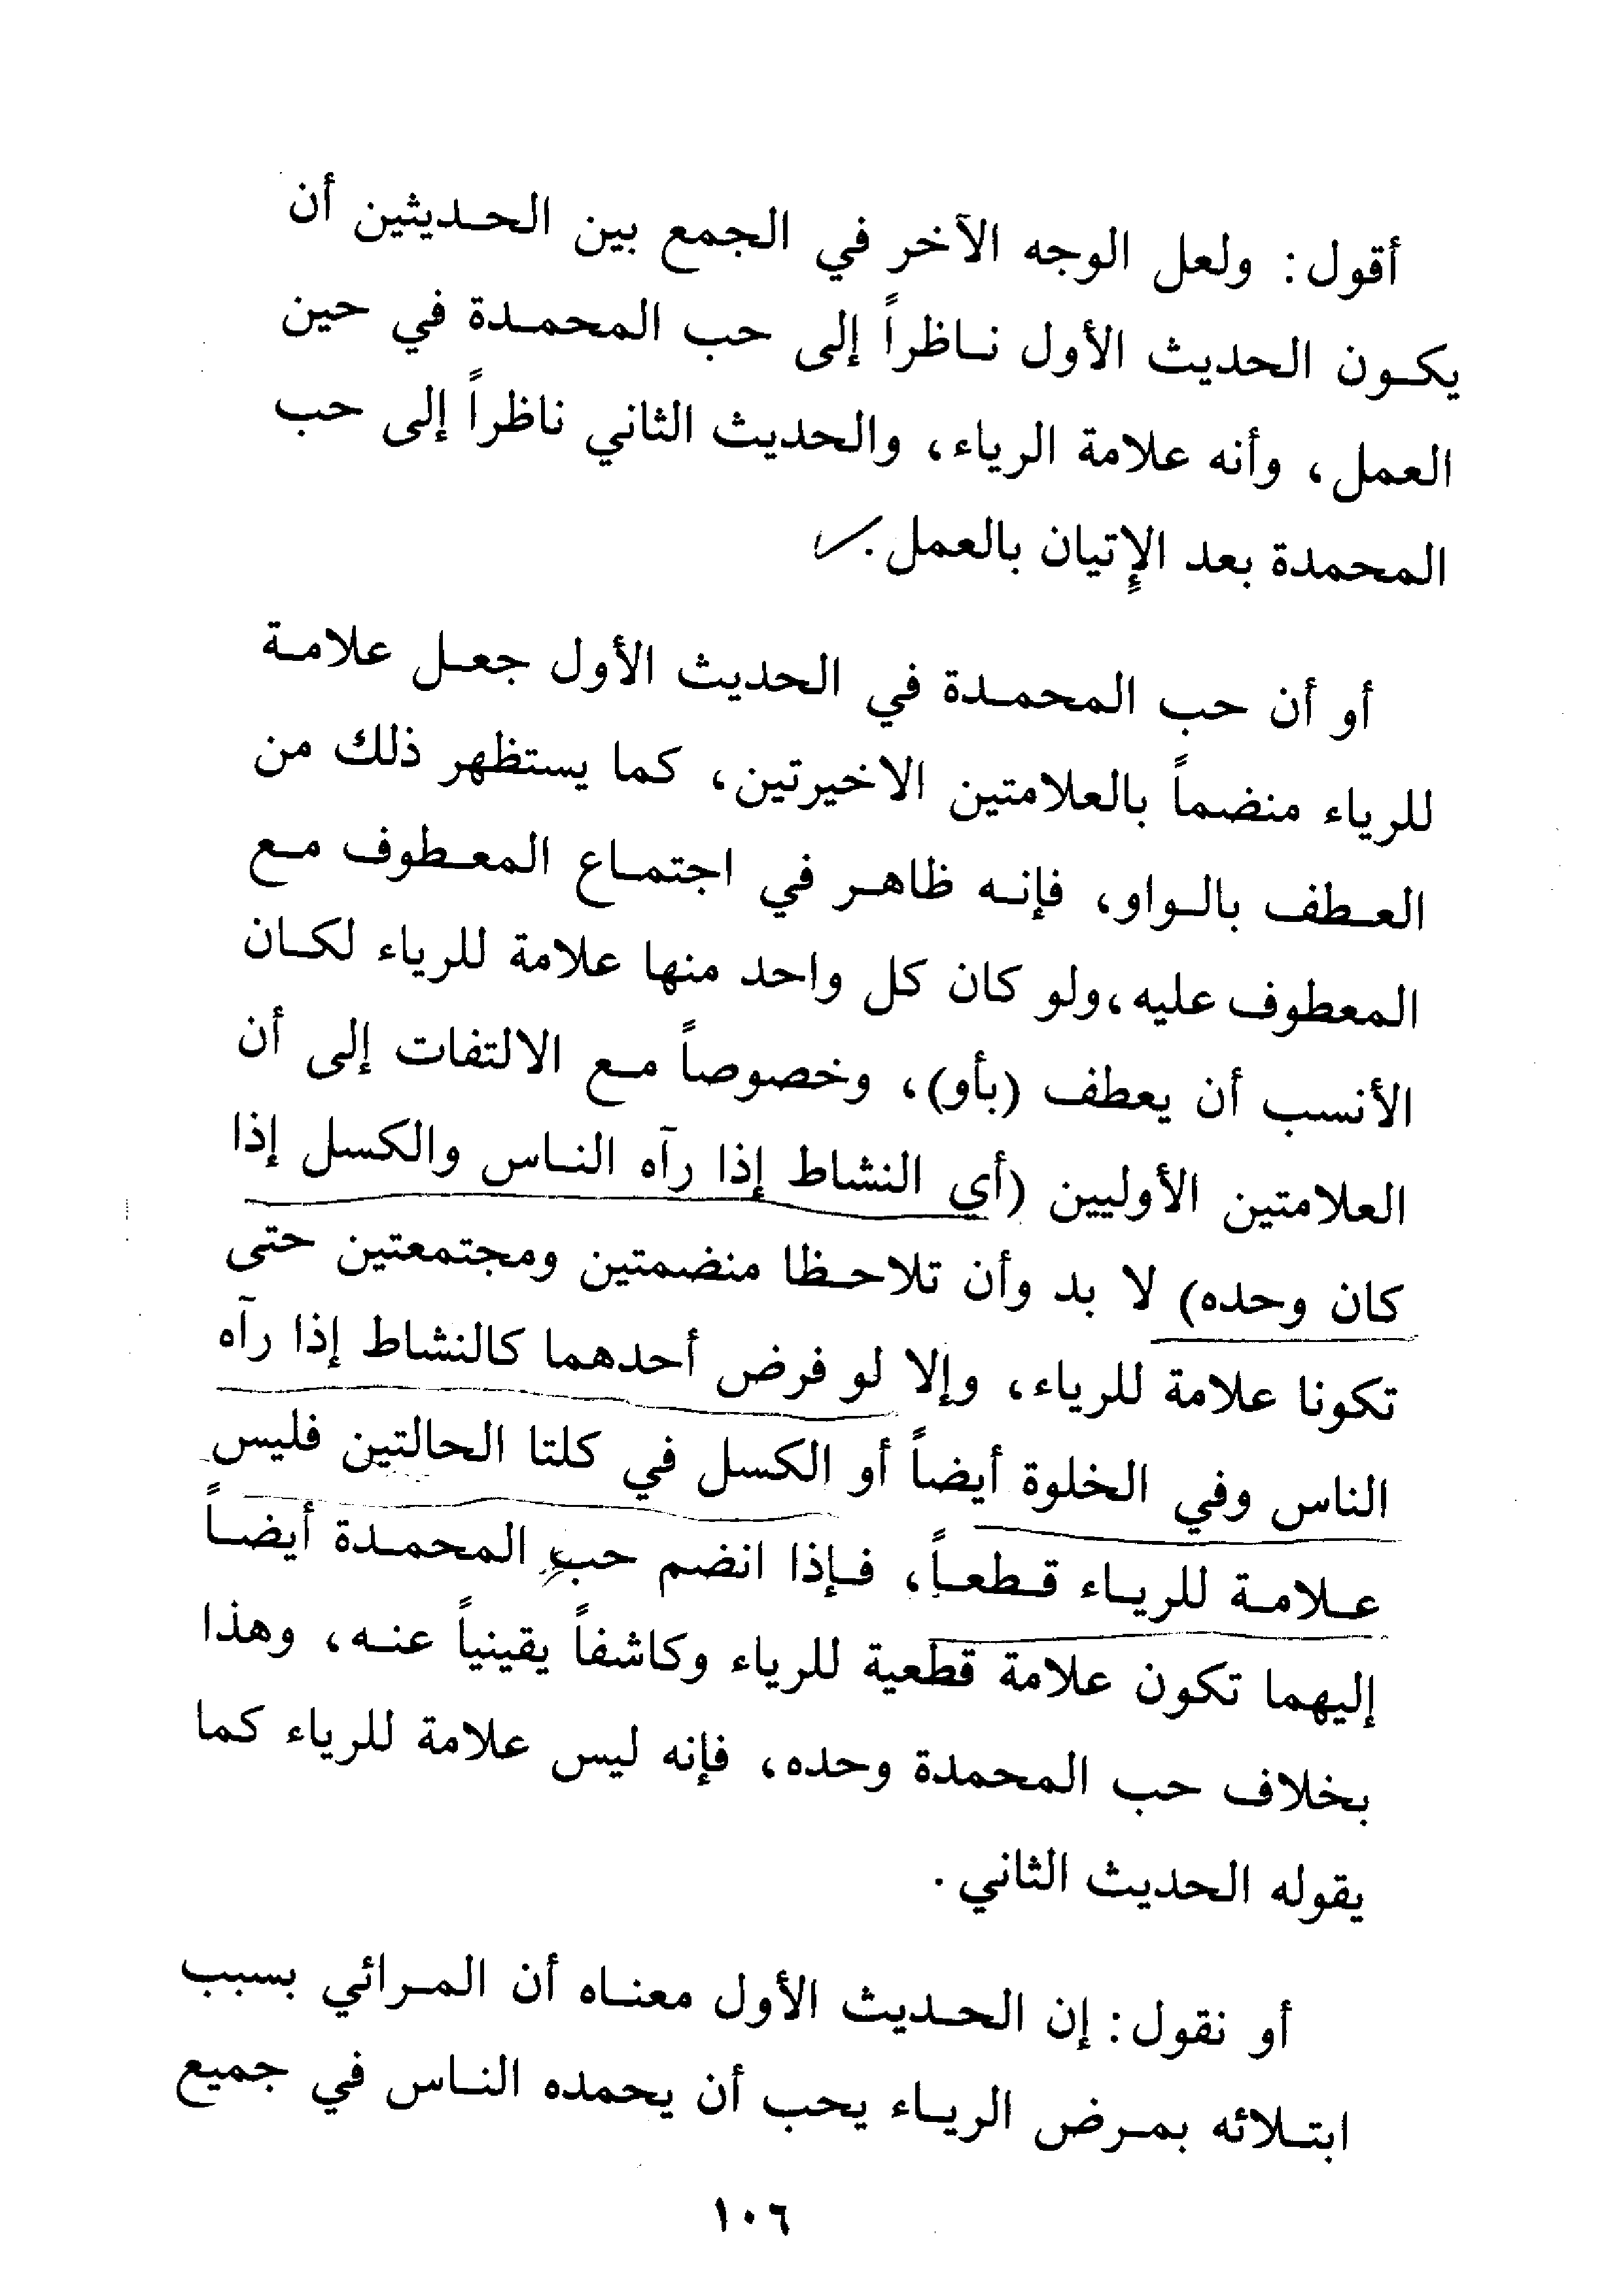 أقول: ولعل الوجه الآخر في الجمع بين الحديثين أن
يكون الحديث الأول ناظراً إلى حب المحمدة في حين
العمل، وأنه علامة الرياء، والحديث الثاني ناظراً إلى حب
المحمدة بعد الإتيان بالعمل.
أو أن حب المحمدة في الحديث الأول جعل علامة
للرياء منضماً بالعلامتين الاخيرتين، كما يستظهر ذلك من
العطف بالواو، فإنه ظاهر في اجتماع المعطوف مع
المعطوف عليه، ولو كان كل واحد منها علامة للرياء لكان
الأنسب أن يعطف (بأو)، وخصوصاً مع الالتفات إلى أن
العلامتين الأوليين (أي النشاط إذا رآه الناس والكسل إذا
كان وحده) لا بد وأن تلاحظا منضمتين ومجتمعتين حتى
تكونا علامة للرياء، وإلا لو فرض أحدهما كالنشاط إذا رآه
الناس وفي الخلوة أيضاً أو الكسل في كلتا الحالتين فليس
علامة للرياء قطعاً، فإذا انضم حب المحمدة أيضاً
إليهما تكون علامة قطعية للرياء وكاشفاً يقينياً عنه، وهذا
بخلاف حب المحمدة وحده، فإنه ليس علامة للرياء كما
يقوله الحديث الثاني.
أو نقول: إن الحديث الأول معناه أن المرائي بسبب
ابتلائه بمرض الرياء يحب أن يحمده الناس في جميع
١٠٦